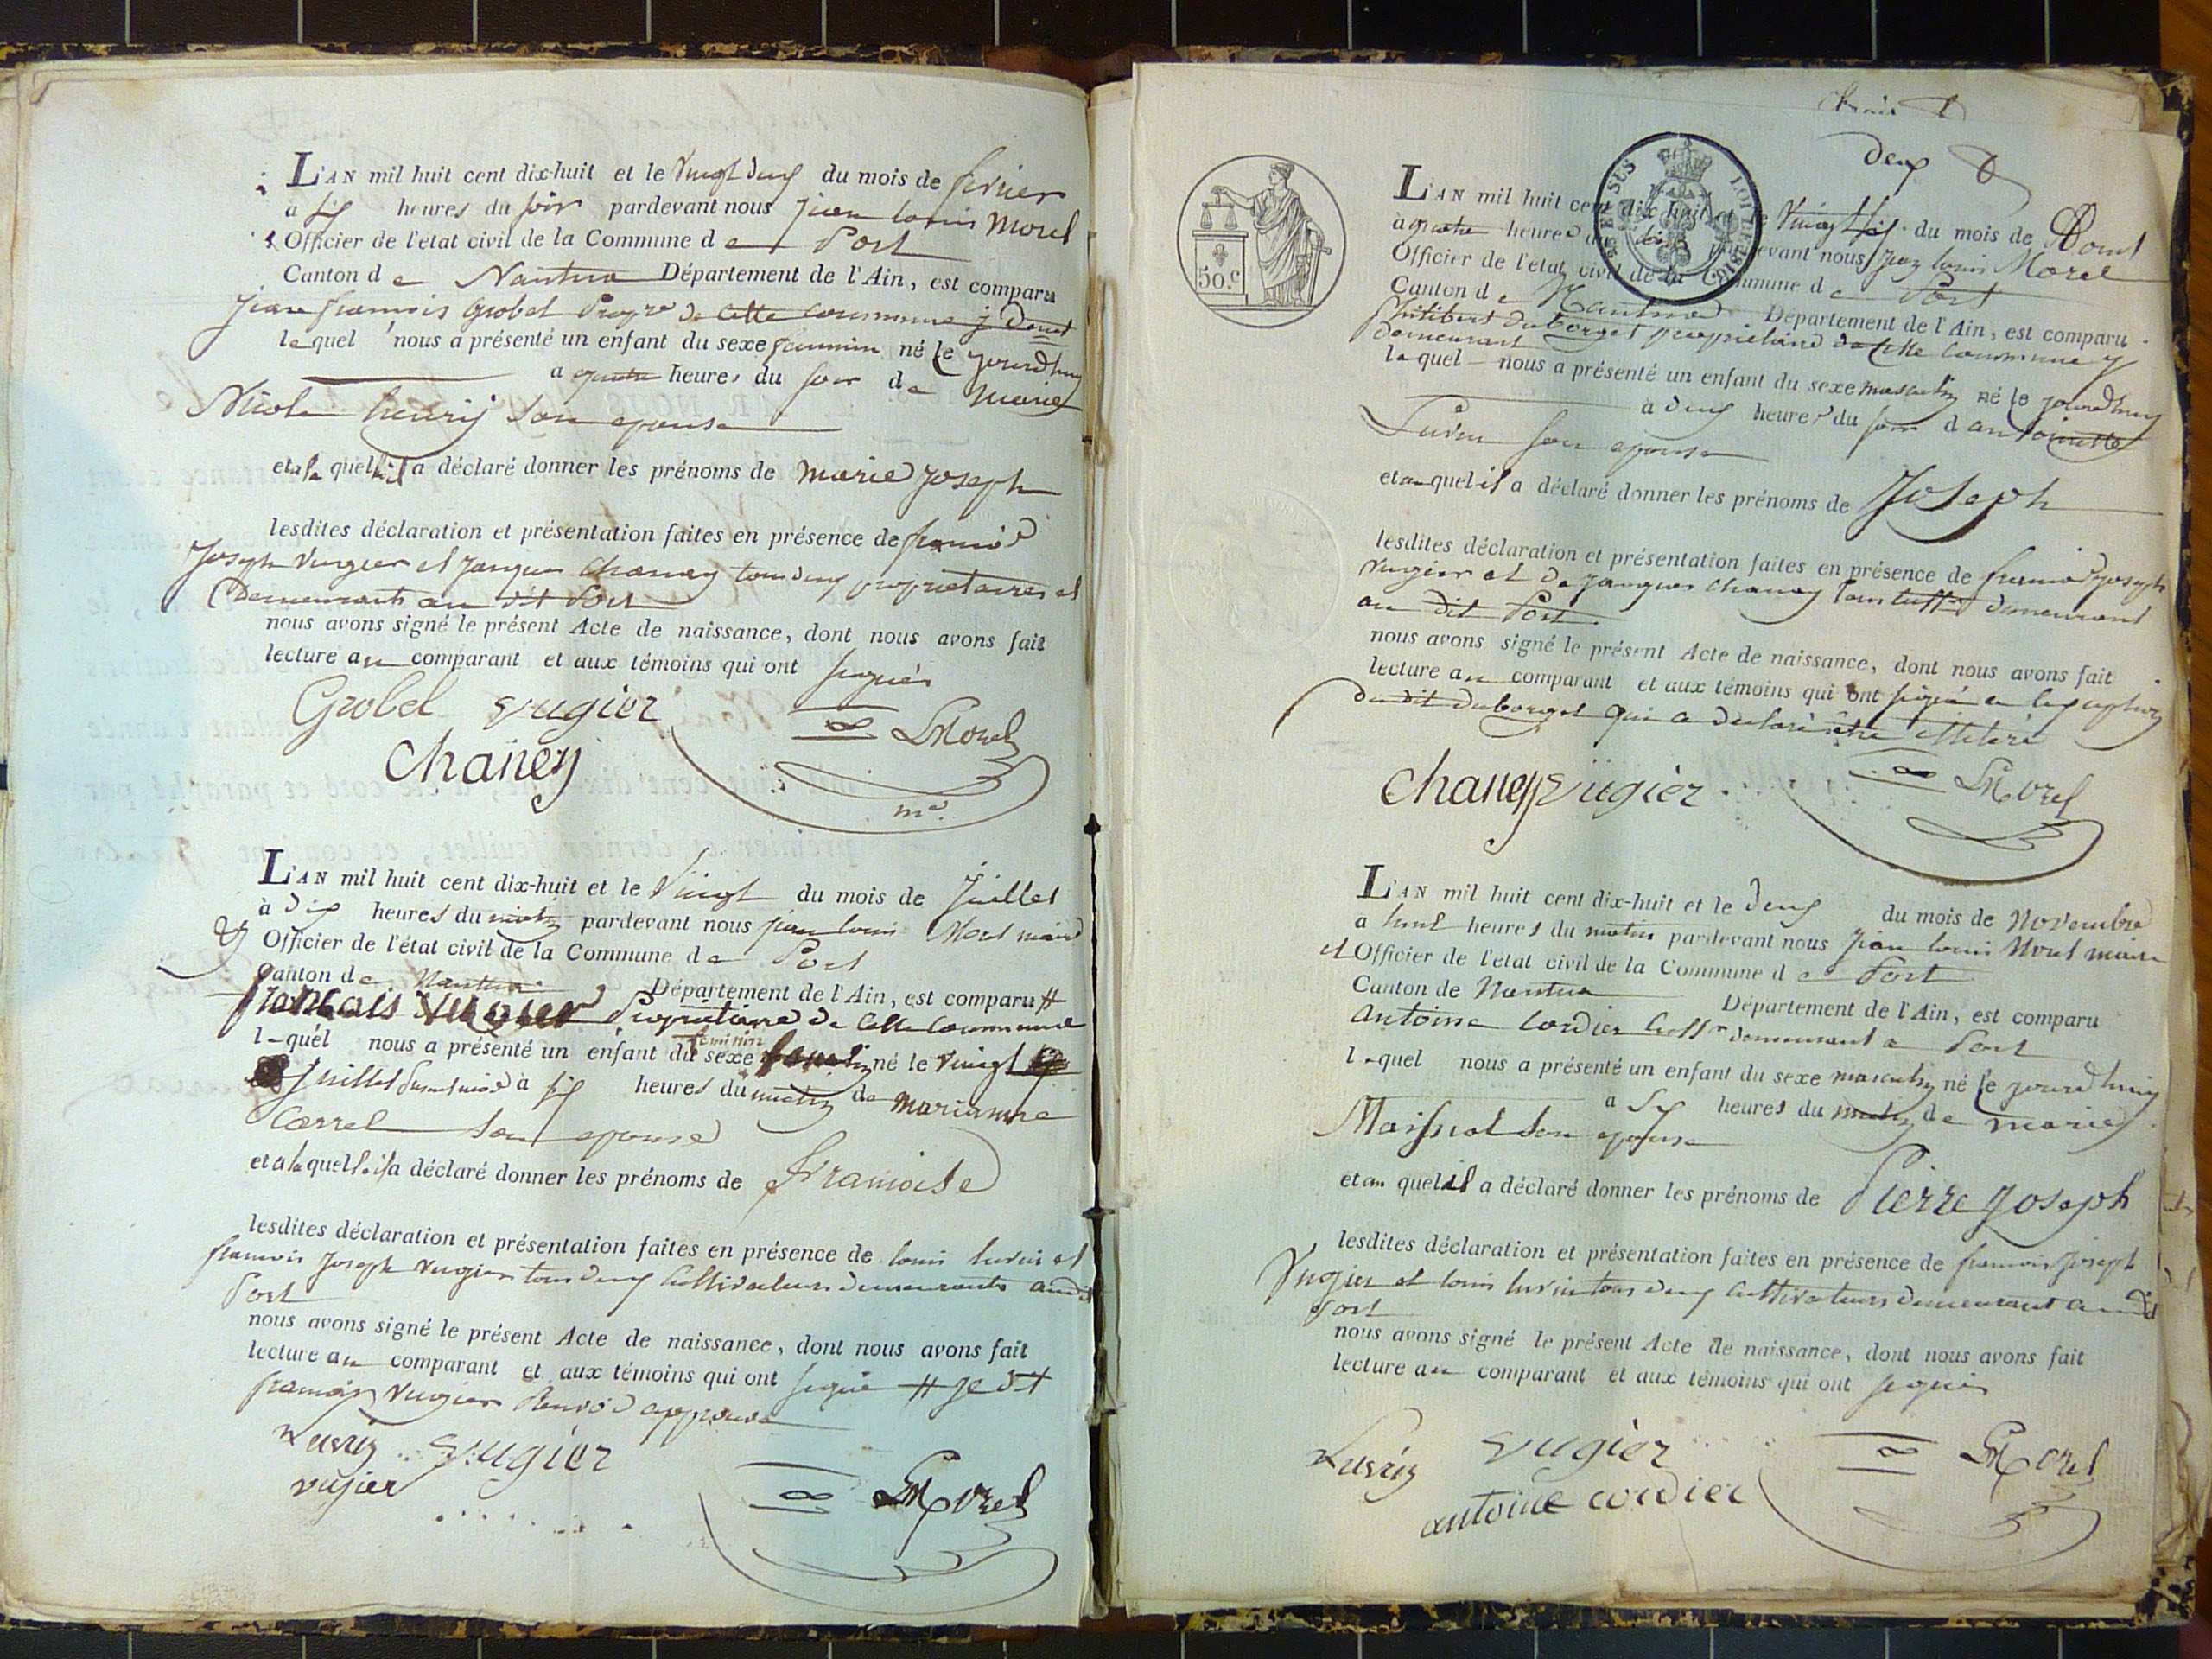 L'AN mil huit cent dix-huit et le vingt deux du mois de fevrier
a six heures du soir pardevant nous jean louis Morel
Officier de l'état civil de la Commune de Port
Canton de Nantua Département de l'Ain, est comparu
jean francois Grobel Propre de cette commune y demt
lequel nous a présenté un enfant du sexe feminin né le jourdhuy
a quatre heures du soir de Marie
Nicole henry son epouse
et a la quelle il a déclaré donner les prénoms de marie joseph
lesdites déclaration et présentation faites en présence de francois
Joseph vugier et jacques Chaney tous deux proprietaires et
Demeurants au dit Port
nous avons signé le présent Acte de naissance, dont nous avons fait
lecture au comparant et aux témoins qui ont signés
Grobel vugier LMorel
Chaney
me.
L'AN mil huit cent dix-huit et le Vingt du mois de Juillet
à dix heures du matin pardevant nous jean louis Morel maire
& Officier de l'état civil de la Commune de Port
Canton de Nantua Département de l'Ain, est comparu #
francois vugier Proprietaire de Cette Commune
lequel nous a présenté un enfant du sexe feminin né le vingt
juillet à six heures du matin de marianne
Carrel son epouse
et a la quelle il a déclaré donner les prénoms de francoise
lesdites déclaration et présentation faites en présence de louis luvrin et
francois Joseph vugier tous deux Cultivateurs demeurants audit
Port
nous avons signé le présent Acte de naissance, dont nous avons fait
lecture au comparant et aux témoins qui ont signé # je dit
francois vugier Renvoi approuvé
Luvrin vugier
vujier LMorel
deux
50.c
L'AN mil huit cent dix huit et le Vingt six du mois de Aout
a quatre heures du soir pardevant nous jean louis Morel
Officier de l'état civil de la Commune de Port
Canton de Nantua Département de l'Ain, est comparu
Philibert Duborget proprietaire de cette Commune y
demeurant
lequel nous a présenté un enfant du sexe masculin né le jourdhuy
a deux heures du soir d antoinette
Luvrin son epouse
et au quel il a déclaré donner les prénoms de Joseph
lesdites déclaration et présentation faites en présence de francois joseph
vugier et de jacques chaney tous demeurant
au dit Port
nous avons signé le présent Acte de naissance, dont nous avons fait
lecture au comparant et aux témoins qui ont signé a lexception
du dit Duborget qui a declaré être illeteré
Chaney vugier LMorel
L'AN mil huit cent dix-huit et le deux du mois de Novembre
a huit heures du matin pardevant nous jean louis Morel maire
et Officier de l'état civil de la Commune de Port
Canton de Nantua Département de l'Ain, est comparu
antoine Cordier demeurant a Port
lequel nous a présenté un enfant du sexe masculin né le jourdhuy
a six heures du matin de marie
Maissiat son epouse
et au quel il a déclaré donner les prénoms de Pierre Joseph
lesdites déclaration et présentation faites en présence de francois joseph
Vugier et louis luvrin tous deux Cultivateurs demeurant audit
Port
nous avons signé le présent Acte de naissance, dont nous avons fait
lecture au comparant et aux témoins qui ont signés
Luvrin vugier LMorel
antoine cordier